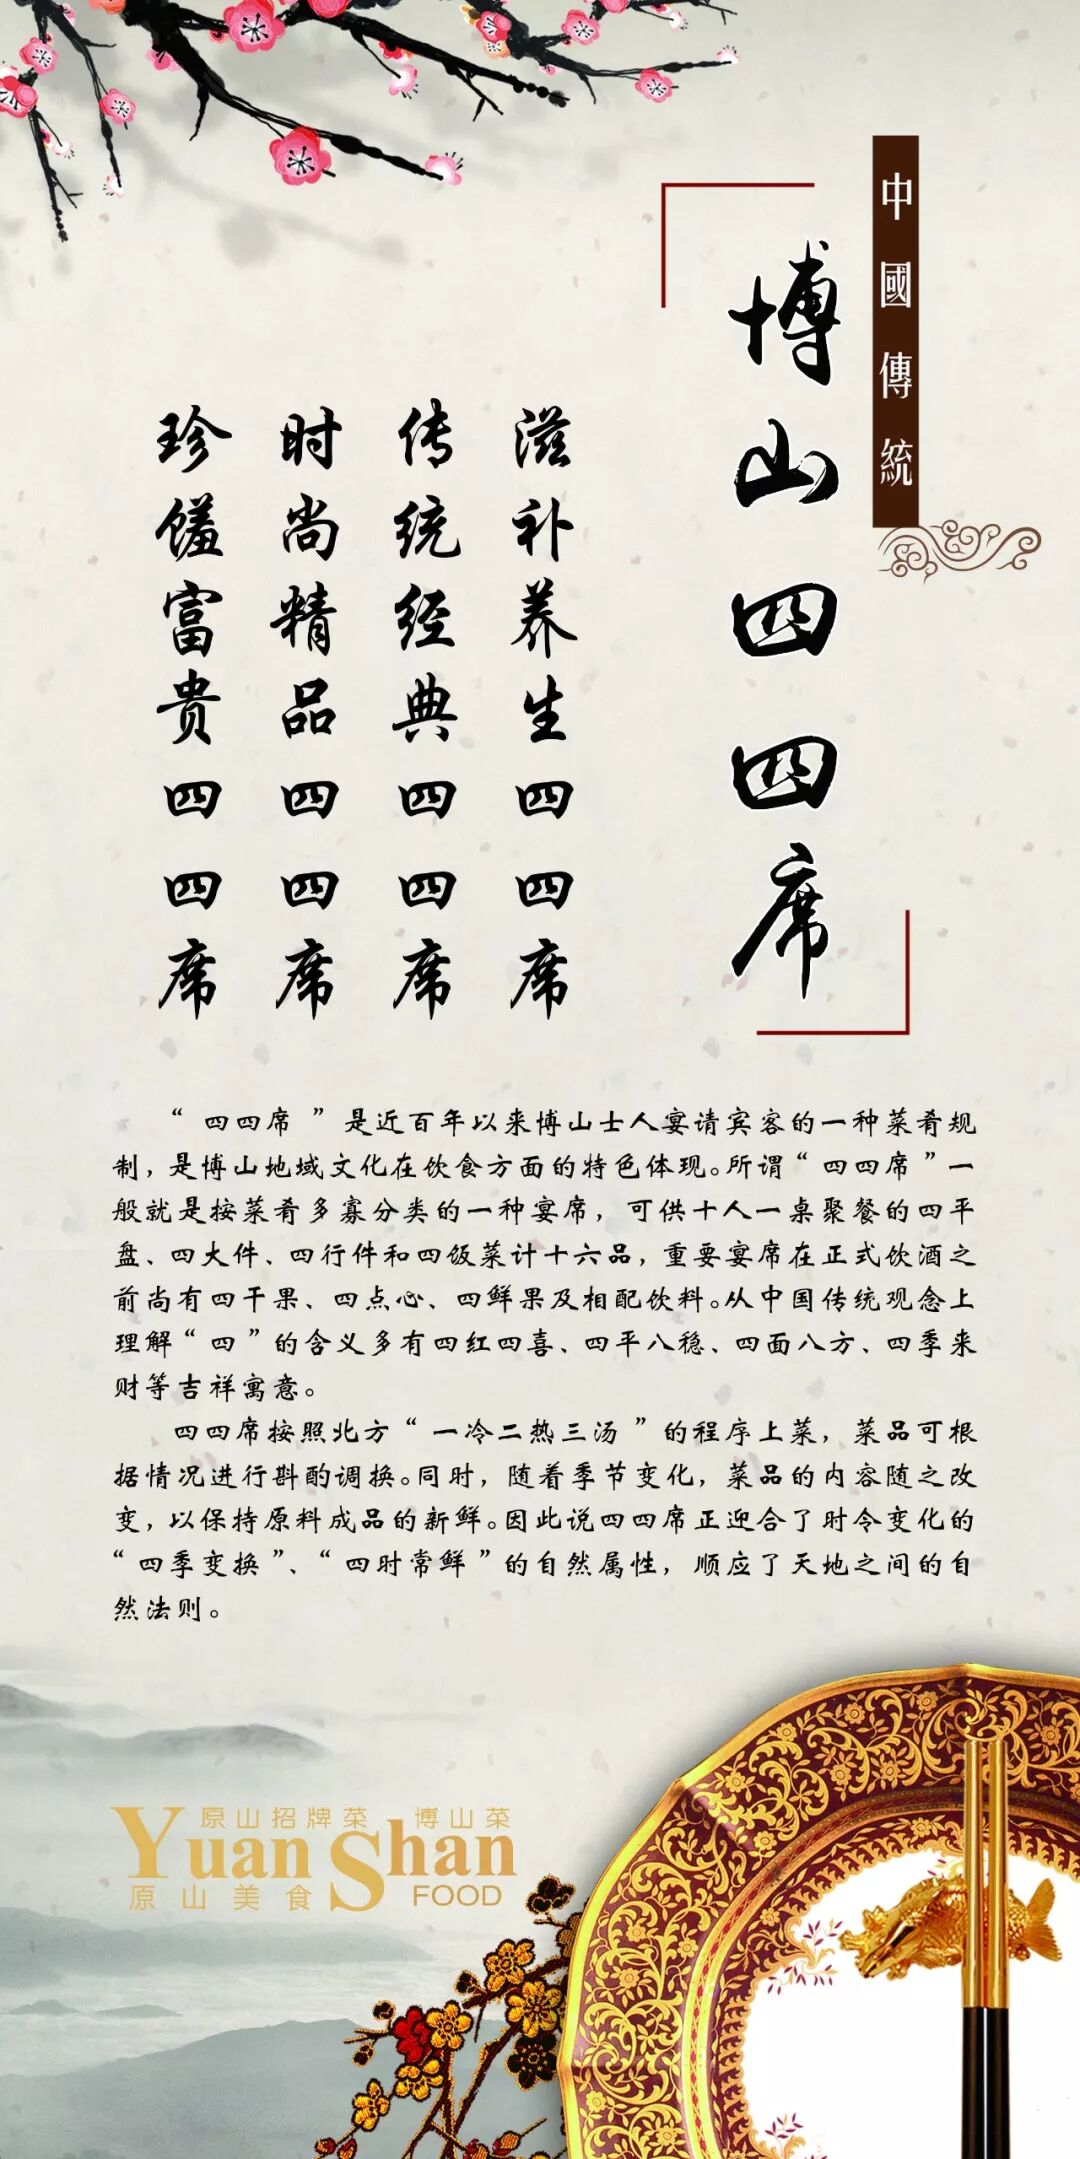 中國傳統
博山四四席
滋补养生四四席
传统经典四四席
时尚精品四四席
珍馐富贵四四席
“四四席”是近百年以来博山士人宴请宾客的一种菜肴规
制，是博山地域文化在饮食方面的特色体现。所谓“四四席”一
般就是按菜肴多寡分类的一种宴席，可供十人一桌聚餐的四平
盘、四大件、四行件和四饭菜计十六品，重要宴席在正式饮酒之
前尚有四干果、四点心、四鲜果及相配饮料。从中国传统观念上
理解“四”的含义多有四红四喜、四平八稳、四面八方、四季来
财等吉祥寓意。
四四席按照北方“一冷二热三汤”的程序上菜，菜品可根
据情况进行斟酌调换。同时，随着季节变化，菜品的内容随之改
变，以保持原料成品的新鲜。因此说四四席正迎合了时令变化的
“四季变换”、“四时常鲜”的自然属性，顺应了天地之间的自
然法则。
原山招牌菜 博山菜
YuanShan
原山美食 FOOD